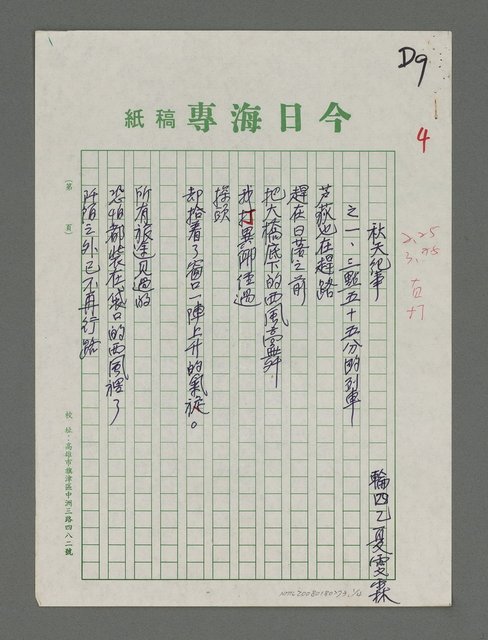 D9
4
今日海專稿紙
2.25
3.75
直
打
秋天紀事
輪四乙夏雯霖
之一、三點五十五分的列車
芦荻也在趕路
趕在日落之前
把大橋底下的西風
我打異鄉經過
探頭
却拾著了窗口一陣上升的氣旋。
所有旅途見過的
恐怕都裝在袋口的西風裡了
阡陌之外已不再行路
(第 頁)
校址：高雄市旗津區中洲三路四八二號